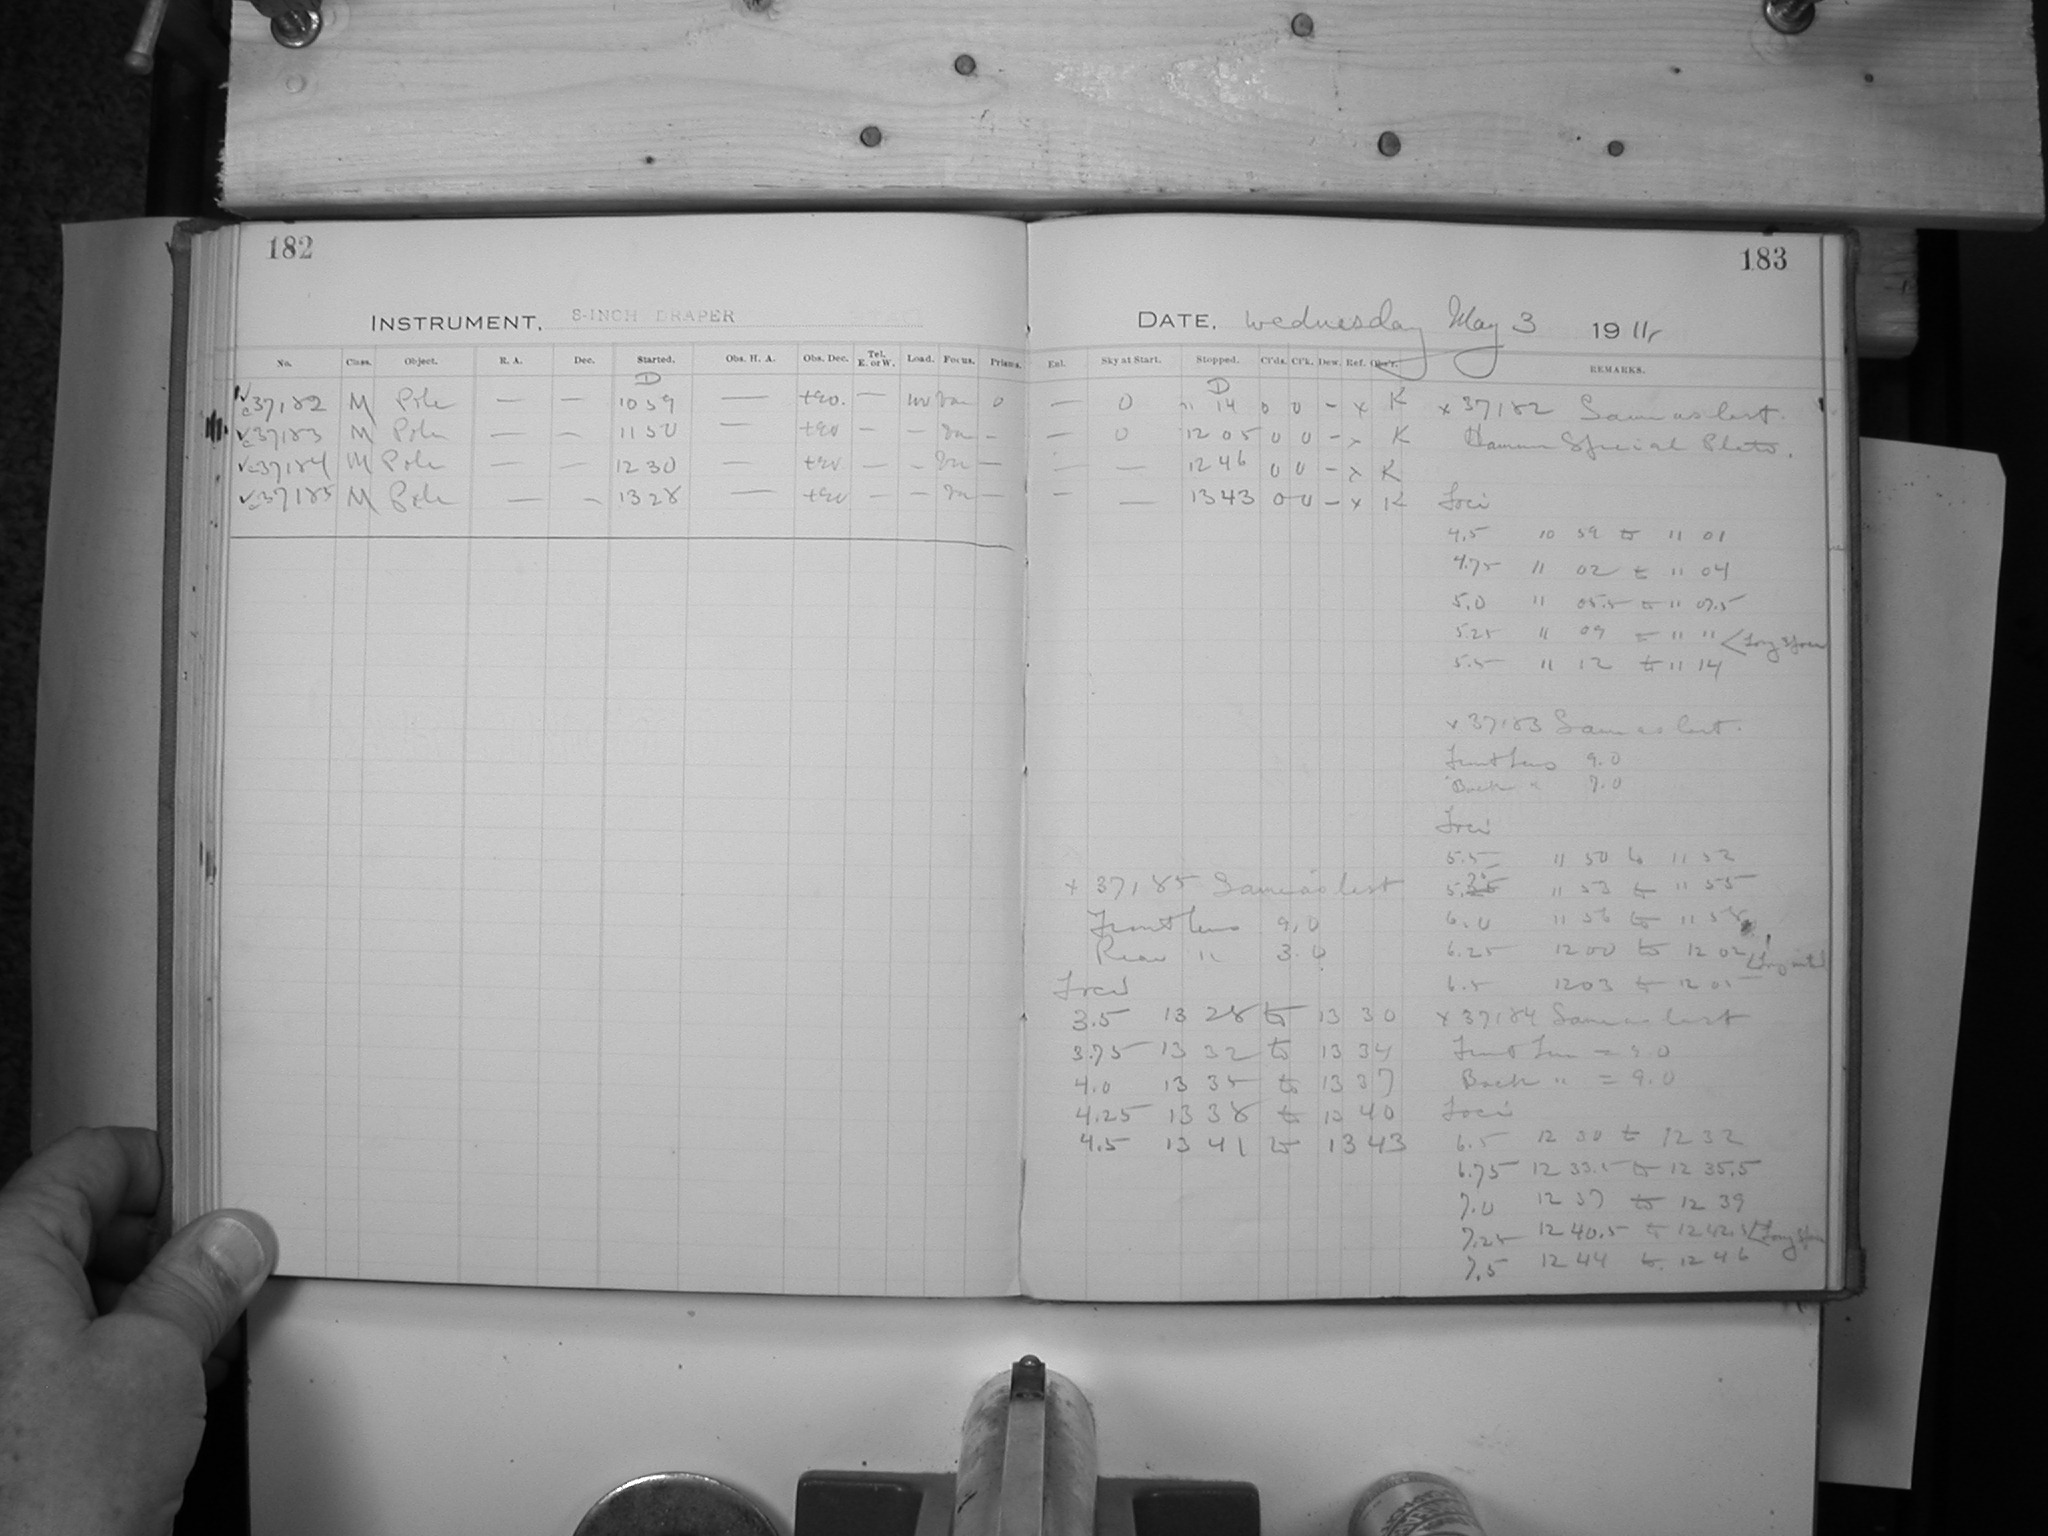 182
INSTRUMENT. 8-INCH DRAPER
No. Class. Object. R. A. Dec. Started. Obs. H. A. Obs. Dec. Tel. E. or W. Load. Focus. Prisms.
D
37182 M Pole — — 10 59 — +90. — 0
37183 M Pole — — 11 50 — +90 — — —
37184 M Pole — — 12 30 — +90 — — —
37185 M Pole — — 13 28 — +90 — — —
183
DATE. Wednesday May 3 1911
Enl. Sky at Start. Stopped. Cl'ds. Cl'k. Dew. Ref. Obs'r. REMARKS.
D
— 0 11 14 0 0 – x K
— 0 12 05 0 0 – x K
— — 12 46 0 0 – x K
— — 13 43 0 0 – x K
x 37182 Same as last.
Special Plate.
Foci
4.5 10 59 to 11 01
4.75 11 02 to 11 04
5.0 11 05.5 to 11 07.5
5.25 11 09 to 11 11
5.5 11 12 to 11 14
x 37183 Same as last.
Front lens 9.0
Back " 7.0
Foci
5.5 11 50 to 11 52
11 53 to 11 55
6.0 11 56 to 11 58
6.25 12 00 to 12 02
6.5 12 03 to 12 05
x 37184 Same as last
Front lens = 9.0
Back " = 9.0
Foci
6.5 12 30 to 12 32
6.75 12 33.5 to 12 35.5
7.0 12 37 to 12 39
7.25 12 40.5 to 12 42.5
7.5 12 44 to 12 46
x 37185 Same as last
Front lens 9.0
Rear " 3.0
Foci
3.5 13 28 to 13 30
3.75 13 32 to 13 34
4.0 13 35 to 13 37
4.25 13 38 to 13 40
4.5 13 41 to 13 43